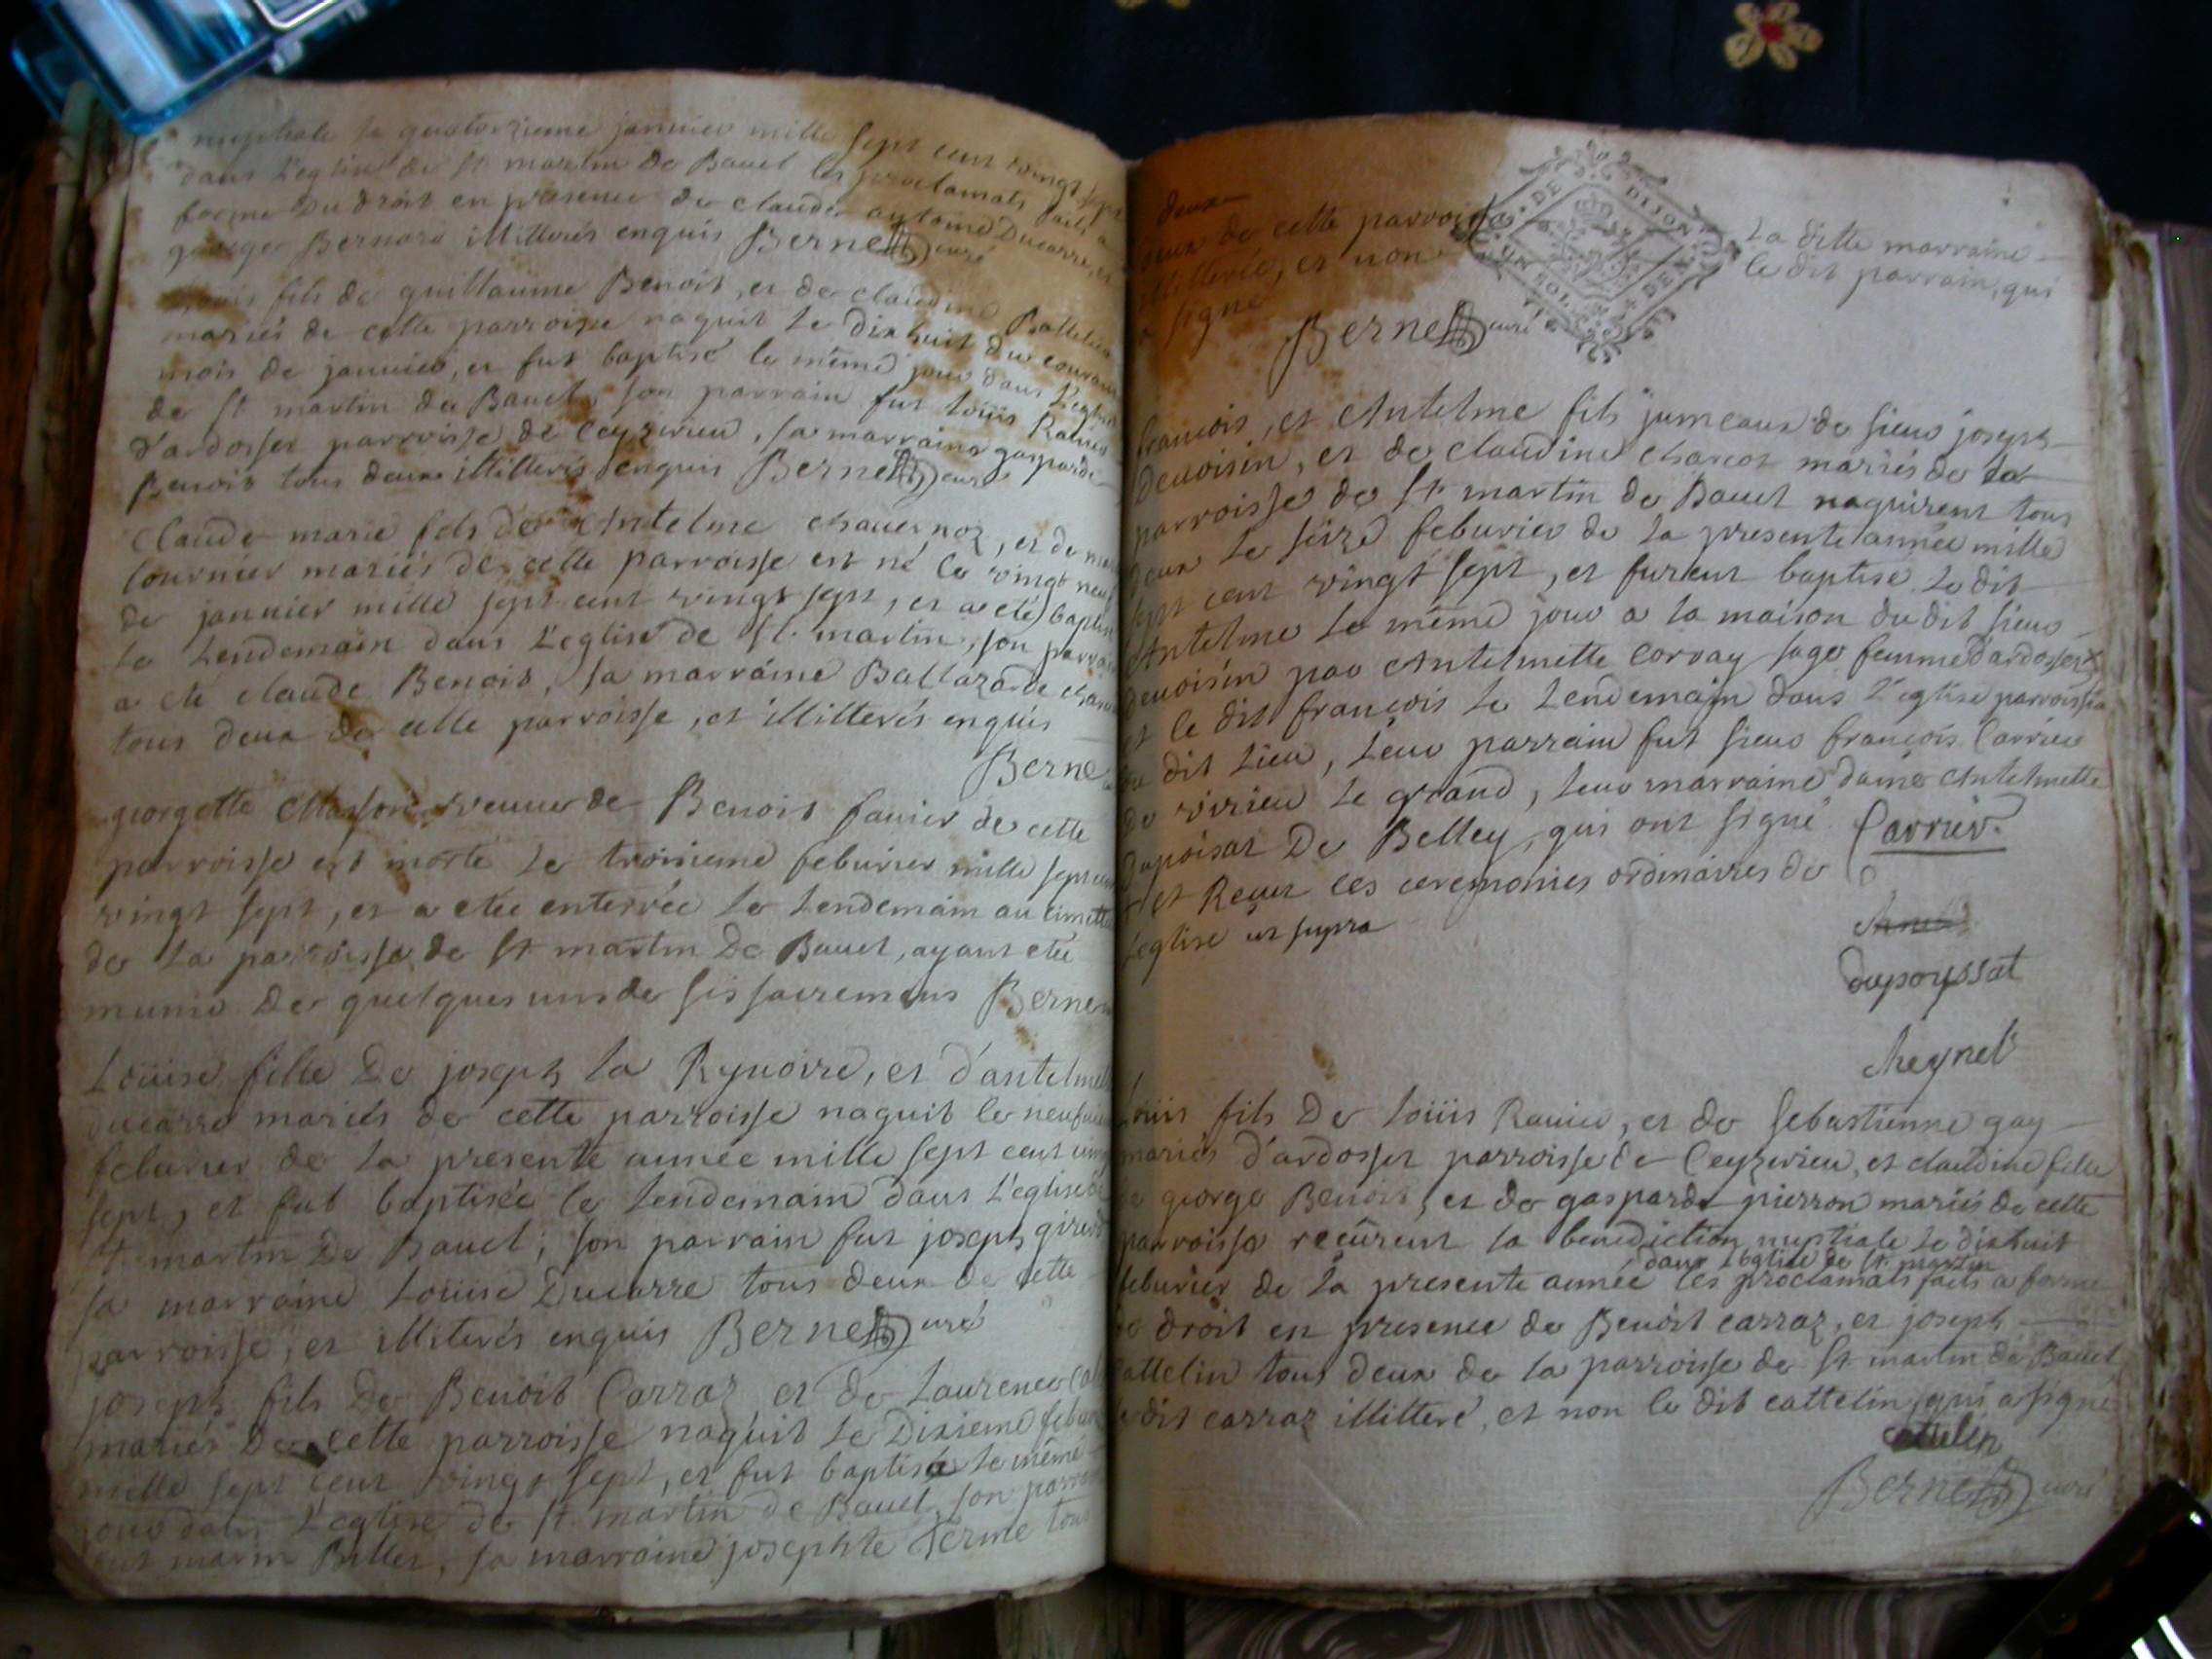 nuptiale le quatorzieme janvier mille sept cent vingt sept
dans l'eglise de st martin de Bauel les proclamats faits a
forme du droit en presence de claude antoine Ducarre, et
george Bernard illitterés enquis Bernet curé
Loüis fils de guillaume Benoit, et de claudine Battelin
mariés de cette parroisse naquit le dixhuit du courant
mois de janvier, et fut baptisé le même jour dans l'eglise
de st martin de Bauel, son parrain fut Loüis Rauier
d'ardosset parroisse de Ceyzerieu, sa marraine gasparde
Benoit tous deux illitterés enquis Bernet curé
Claude marie fils de Antelme chauernoz, et de
tournier mariés de cette parroisse est né le vingt neuf
de janvier mille sept cent vingt sept, et a eté baptisé
le Lendemain dans l'eglise de st martin, son parrain
a eté claude Benoit, sa marraine Baltazarde
tous deux de cette parroisse, et illitterés enquis
Berne
georgette Masson veuue de Benoit fauier de cette
parroisse est morte le troisieme feburier mille sept cent
vingt sept, et a etée enterrée le Lendemain au cimettiere
de la parroisse de st martin De Bauel, ayant etée
munie de quelques uns de ses sacremens Bernet
Loüise fille De joseph la Rynoire, et d'antelmette
Ducarre mariés de cette parroisse naquit le neufuieme
feburier de la presente année mille sept cent vingt
sept, et fut baptisée le Lendemain dans l'eglise de
st martin De Bauel, son parrain fut joseph
sa marraine Loüise Ducarre tous deux de cette
parroisse, et illiterés enquis Bernet curé
joseph fils De Benoit Carraz et de Laurence
mariés De cette parroisse naquit le Dixieme feburier
mille sept cent vingt sept, et fut baptisé le même
jour dans l'eglise de st martin de Bauel, son parrain
fut marin Billet, sa marraine josephte ferme tous
deux
deux de cette parroisse, la ditte marraine
illitterée, et non le dit parrain, qui
a signé
Bernet curé
DE DIJON
UN SOL 4 DEN
francois, et Antelme fils jumeaux de sieur joseph
Deuoisin, et de claudine charcot mariés de la
parroisse de st martin de Bauel naquirent tous
deux le seize feburier de la presente année mille
sept cent vingt sept, et furent baptisé le dit
Antelme le même jour a la maison du dit sieur
deuoisin par Antelmette Coruay sage femme d'ardosset
et le dit françois le Lendemain dans l'eglise parroissia
du dit Lieu, Leur parrain fut sieur françois Carrier
de virieu le grand, leur marraine dame Antelmette
Dupoisat De Belley, qui ont signé Carrier
et Reçut les ceremonies ordinaires de
L'eglise ut supra
dupoyssat
cheynel
Loüis fils De Loüis Rauier, et de sebastienne gay
mariés d'ardosset parroisse de Ceyzerieu, et claudine fille
de george Benoit, et de gasparde pierron mariés de cette
parroisse reçûrent la benediction nuptiale le dixhuit
dans l'eglise de st martin
feburier de la presente année les proclamats faits a forme
de droit en presence de Benoit carraz, et joseph
cattelin tous deux de la parroisse de st martin de Bauel
le dit carraz illitteré, et non le dit cattelin, qui a signé
cattelin
Bernet curé